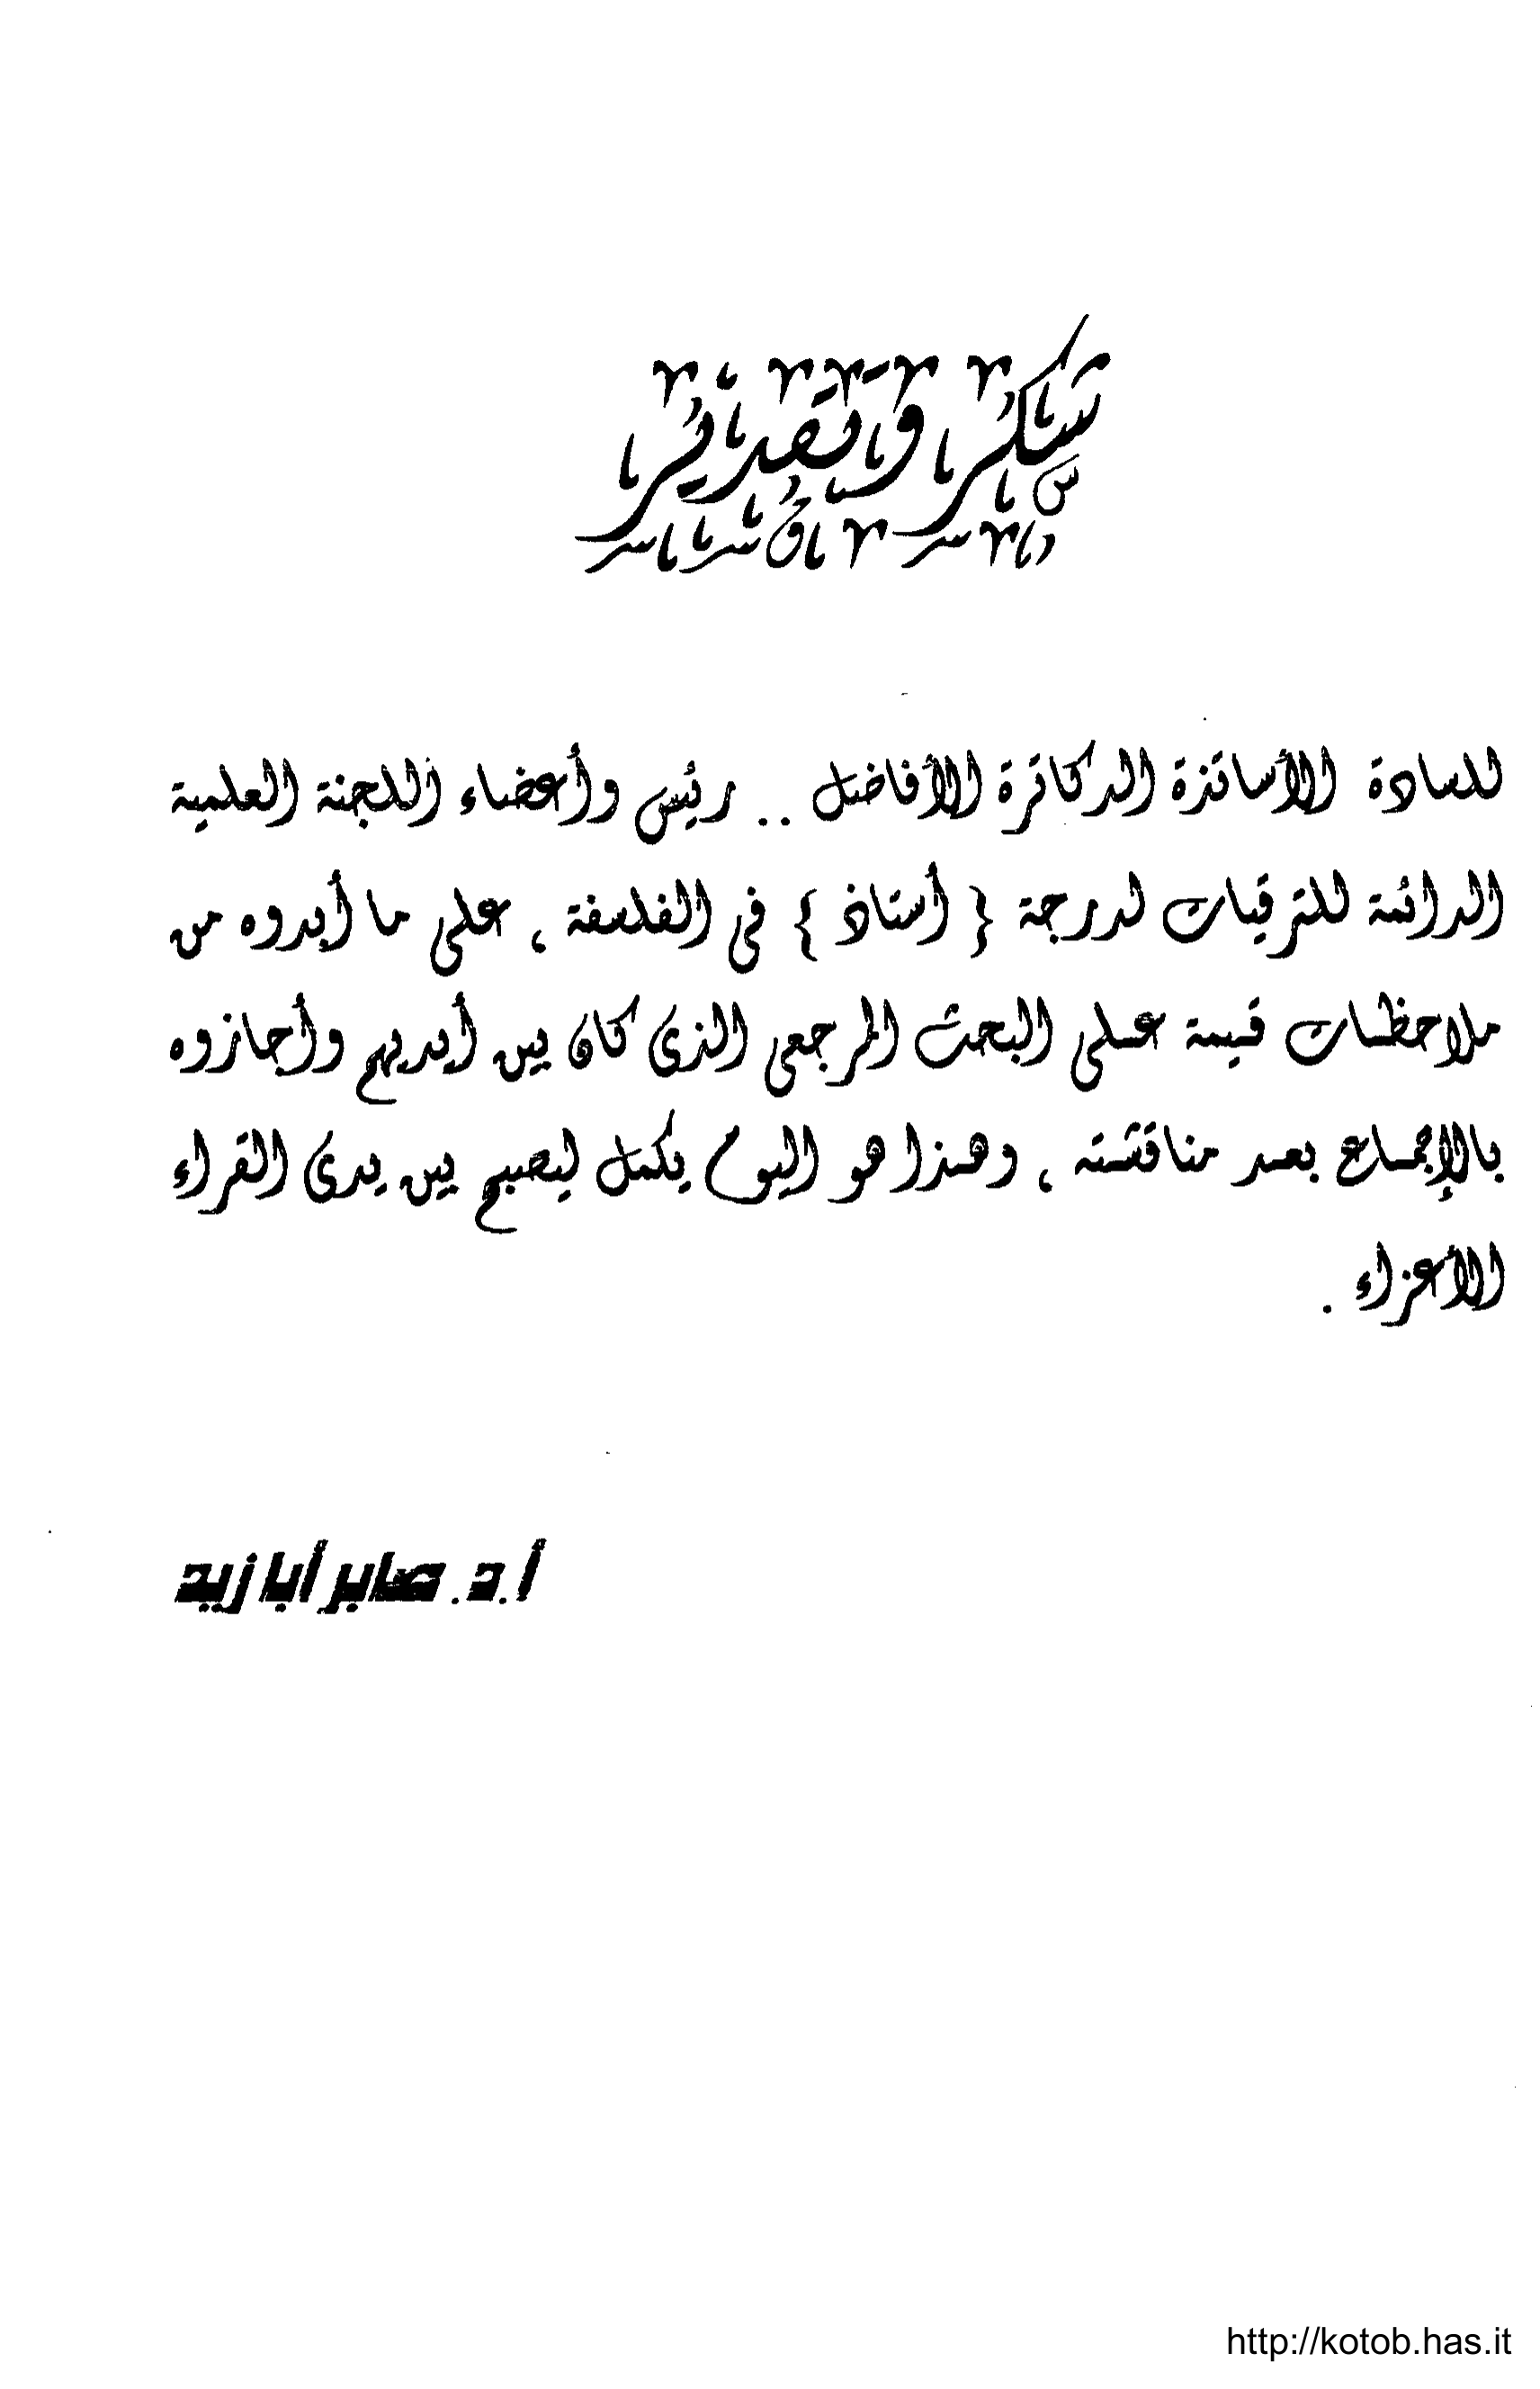 شكر وتقدير
للسادة الأساتذة الدكاترة الأفاضل .. رئيس وأعضاء اللجنة العلمية
الدائمة للترقيات لدرجة { أستاذ } فى الفلسفة ، على ما أبدوه من
ملاحظات قيمة على البحث المرجعى الذى كان بين أيديهم وأجازوه
بالإجماع بعد مناقشته ، وهذا هو اليوم يكمل ليصبح بين يدى القراء
الأعزاء .
أ.د. صابر أبا زيد
http://kotob.has.it